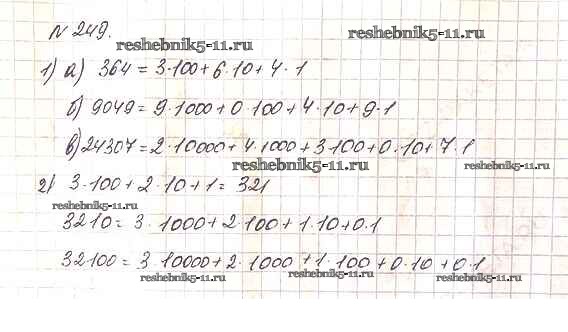 № 249.
reshebnik5-11.ru
reshebnik5-11.ru
1) а) 364 = 3·100 + 6·10 + 4·1
б) 9049 = 9·1000 + 0·100 + 4·10 + 9·1
в) 24307 = 2·10000 + 4·1000 + 3·100 + 0·10 + 7·1
reshebnik5-11.ru
reshebnik5-11.ru
2) 3·100 + 2·10 + 1 = 321
reshebnik5-11.ru
3210 = 3·1000 + 2·100 + 1·10 + 0·1
32100 = 3·10000 + 2·1000 + 1·100 + 0·10 + 0·1
reshebnik5-11.ru
reshebnik5-11.ru
reshebnik5-11.ru